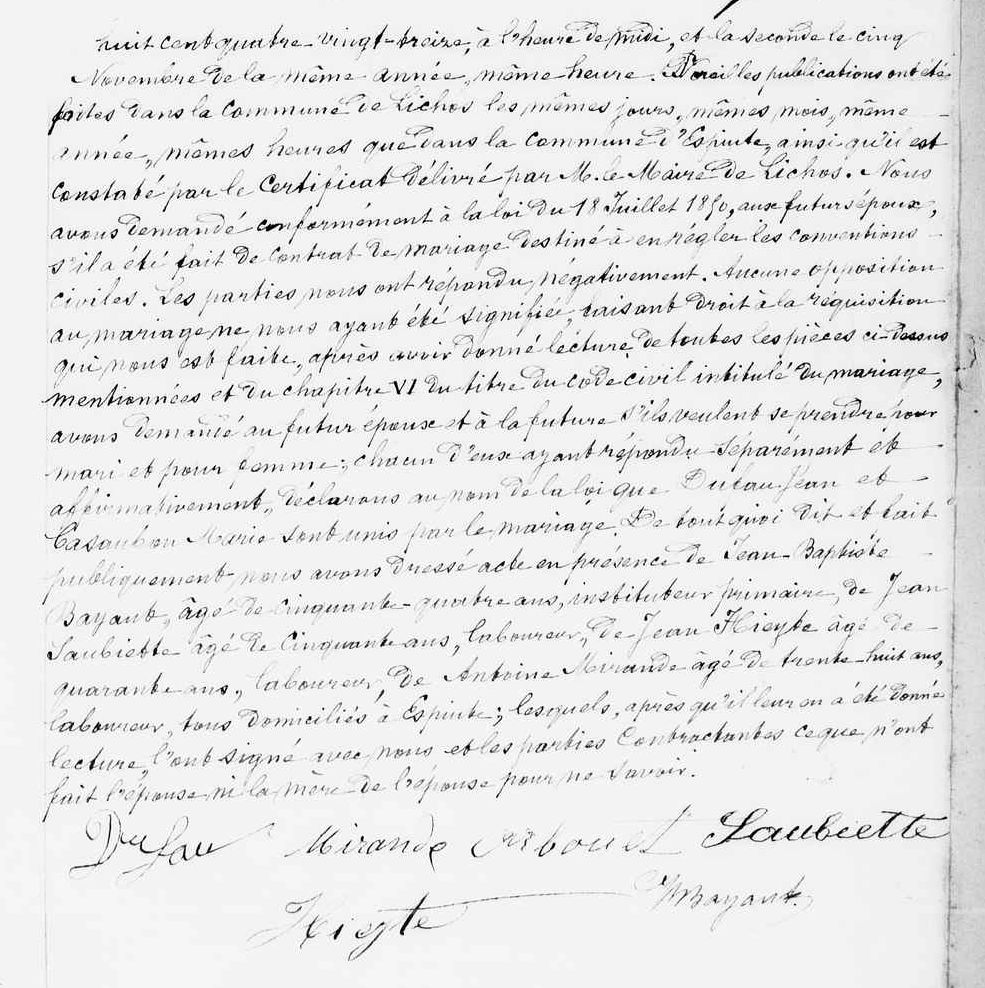 huit cent quatre-vingt-treize, à l'heure de midi, et la seconde le cinq
Novembre de la même année, même heure. Pareilles publications ont été
faites dans la commune de Lichos les mêmes jours, mêmes mois, même
année, mêmes heures que dans la commune d'Espiute, ainsi qu'il est
constaté par le certificat délivré par M. le Maire de Lichos. Nous
avons demandé conformément à la loi du 18 Juillet 1850, aux futurs époux,
s'il a été fait de contrat de mariage destiné à en régler les conventions
civiles. Les parties nous ont répondu négativement. Aucune opposition
au mariage ne nous ayant été signifiée, faisant droit à la réquisition
qui nous est faite, après avoir donné lecture de toutes les pièces ci-dessus
mentionnées et du chapitre VI du titre du code civil intitulé du mariage,
avons demandé au futur époux et à la future s'ils veulent se prendre pour
mari et pour femme; chacun d'eux ayant répondu séparément et
affirmativement, déclarons au nom de la loi que Dufau Jean et
Casaubou Marie sont unis par le mariage. De tout quoi dit et fait
publiquement nous avons dressé acte en présence de Jean-Baptiste
Bayaut, âgé de cinquante-quatre ans, instituteur primaire, de Jean
Saubiette âgé de cinquante ans, laboureur, de Jean Hieyte âgé de
quarante ans, laboureur, de Antoine Mirande âgé de trente-huit ans,
laboureur, tous domiciliés à Espiute; lesquels, après qu'il leur en a été donné
lecture, l'ont signé avec nous et les parties contractantes ce que n'ont
fait l'épouse ni la mère de l'épouse pour ne savoir.
Dufau Mirande Arbouet Saubiette
Hieyte Bayaut